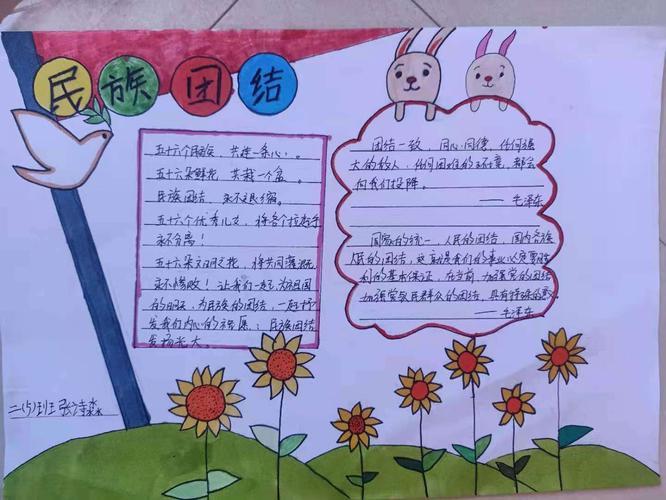 民族团结
五十六个民族，共连一条心。
五十六朵鲜花，共栽一个盆。
民族团结，永不退缩。
五十六个优秀儿女，将各个拉起手
永不分离！
五十六朵文明之花，将共同落泥
永不惨败！让我们一起为祖国
的明天，为民族的团结，一起抒
发我们内心的祝愿：民族团结
发扬光大。
团结一致，同心同德，任何强
大的敌人，任何困难的环境，都会
向我们投降。
——毛泽东
国家的统一，人民的团结，国内各族
人民的团结，这就是我们的事业必定要胜
利的基本保证，在当前，加强党的团结
加强党和人民群众的团结，具有特殊的
——毛泽东
二(5)班 张诗淼